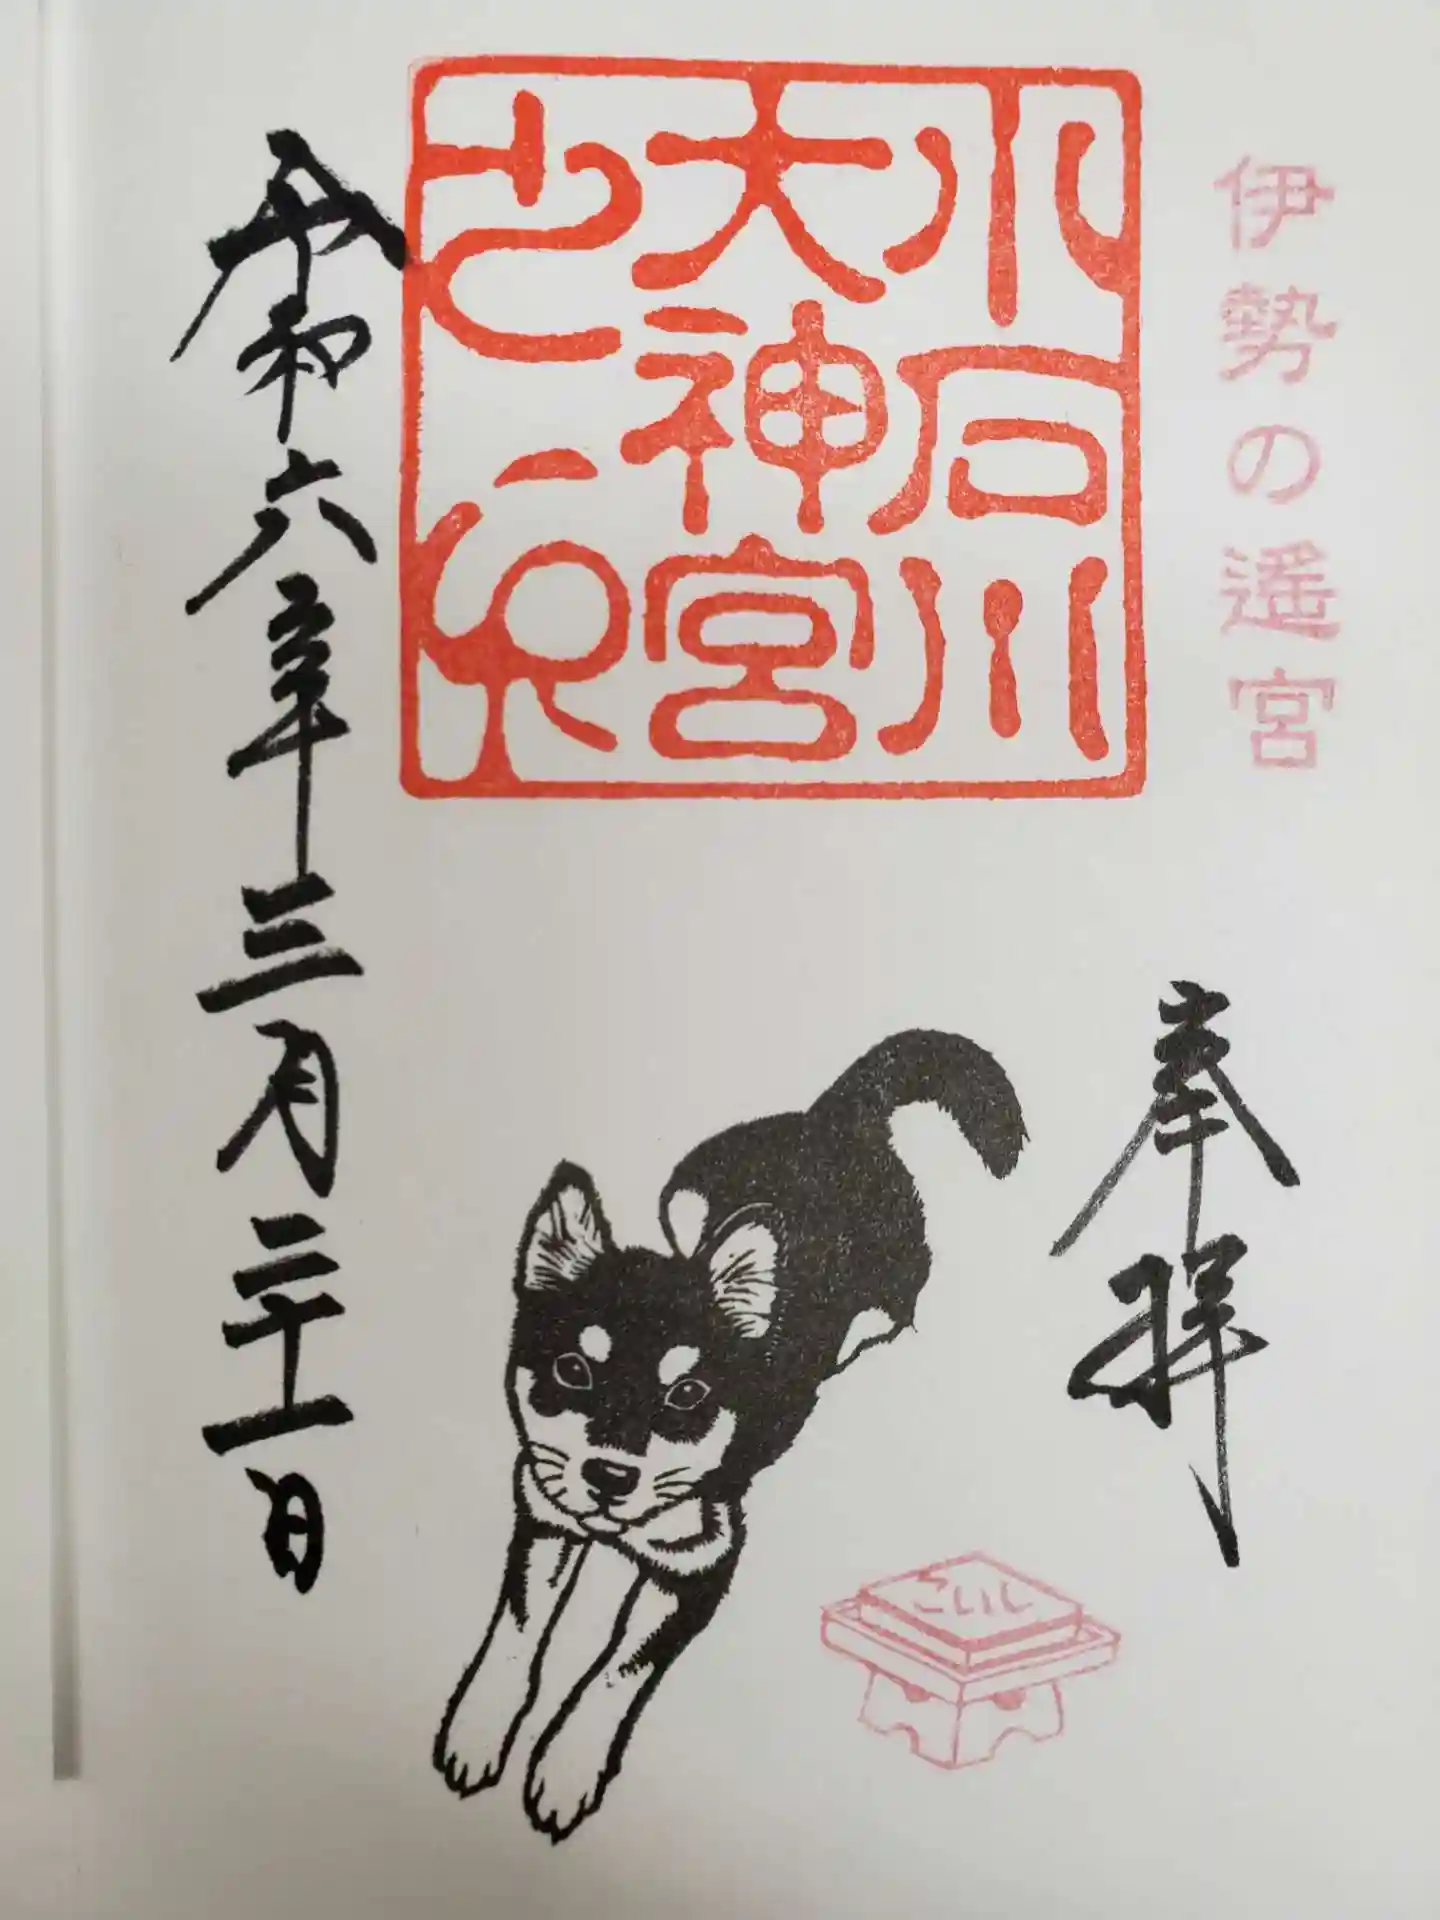 伊勢の遥宮
奉拝
小石川
大神宮
之印
こいし
令和六年三月二十一日